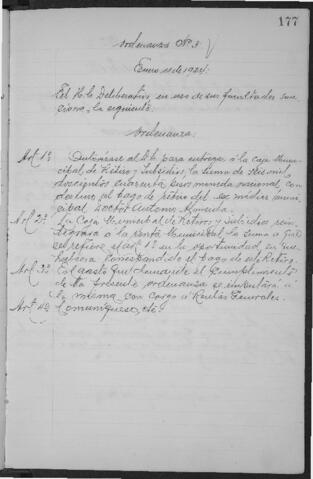 177
Ordenanza Nº 3
Enero 11 de 1924.
El H. C. Deliberativo, en uso de sus facultades san-
ciona, la siguiente
Ordenanza:
Art. 1º Autorízase al D. E. para entregar á la Caja Muni-
cipal de Retiro y Subsidios, la suma de seis mil
doscientos cuarenta pesos moneda nacional, con
destino al pago de retiro del ex médico muni-
cipal Doctor Antonio
Art. 2º La Caja Municipal de Retiros y Subsidios rein-
tegrará á la renta Municipal la suma á que
se refiere el art. 1º en la oportunidad en que
hubiera correspondido el pago de ese Retiro.
Art. 3º El gasto que demande el cumplimiento
de la presente ordenanza se imputará á
la misma con cargo á Rentas Generales.
Art. 4º Comuníquese, etc.